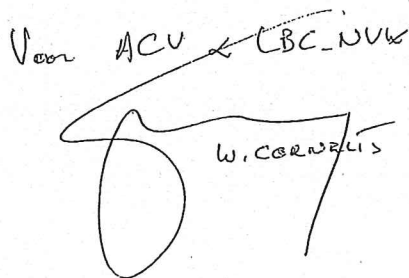 Voor ACV & LBC-NVK
W. CORNELIS